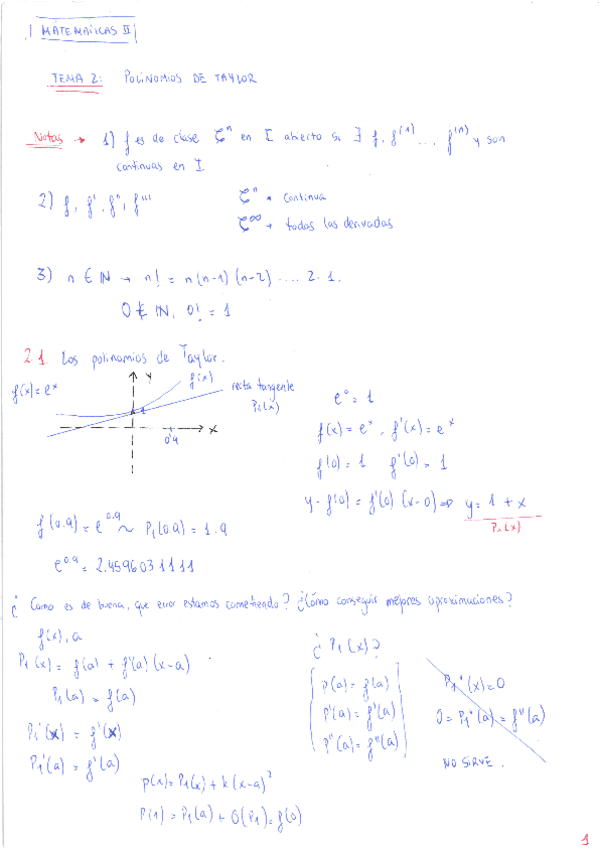 MATEMATICAS II
TEMA 2: POLINOMIOS DE TAYLOR
Notas → 1) f es de clase ℂⁿ en I abierto si ∃ f, f⁽¹⁾ ... f⁽ⁿ⁾ y son
continuas en I
2) f, f', f'', f'''
ℂⁿ → continua
ℂ^∞ → todas las derivadas
3) n ∈ IN → n! = n(n-1)(n-2) ..... 2·1.
0 ∉ IN, 0! = 1
2.1 Los polinomios de Taylor.
f(x)=e^x
y
f(x)
recta tangente
P₁(x)
1
0'9
x
e^0 = 1
f(x) = e^x, f'(x) = e^x
f(0) = 1 f'(0) = 1
y - f(0) = f'(0) (x-0) ⇒ y = 1 + x
P₁(x)
f(0.9) = e^0.9 ~ P₁(0.9) = 1.9
e^0.9 = 2.4596031111
¿ Como es de buena, que error estamos cometiendo? ¿Cómo conseguir mejores aproximaciones?
f(x), a
P₁(x) = f(a) + f'(a) (x-a)
P₁(a) = f(a)
P₁'(x) = f'(x)
P₁'(a) = f'(a)
¿ P₁(x)?
p(a) = f(a)
p'(a) = f'(a)
p''(a) = f''(a)
P₁''(x) = 0
0 = P₁''(a) = f''(a)
NO SIRVE.
p(x) = P₁(x) + k(x-a)²
P(1) = P₁(a) + 0(P₁) = f(0)
1